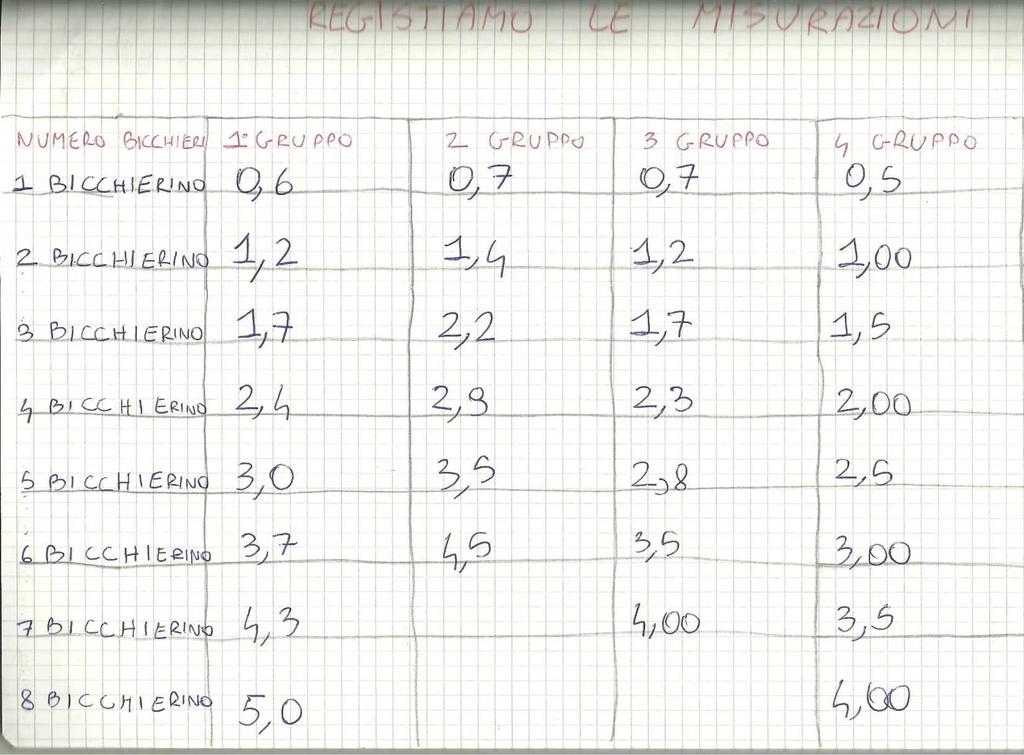 REGISTIAMO LE MISURAZIONI
NUMERO BICCHIERI 1° GRUPPO 2 GRUPPO 3 GRUPPO 4 GRUPPO
1 BICCHIERINO 0,6 0,7 0,7 0,5
2 BICCHIERINO 1,2 1,4 1,2 1,00
3 BICCHIERINO 1,7 2,2 1,7 1,5
4 BICCHIERINO 2,4 2,9 2,3 2,00
5 BICCHIERINO 3,0 3,5 2,8 2,5
6 BICCHIERINO 3,7 4,5 3,5 3,00
7 BICCHIERINO 4,3 4,00 3,5
8 BICCHIERINO 5,0 4,00